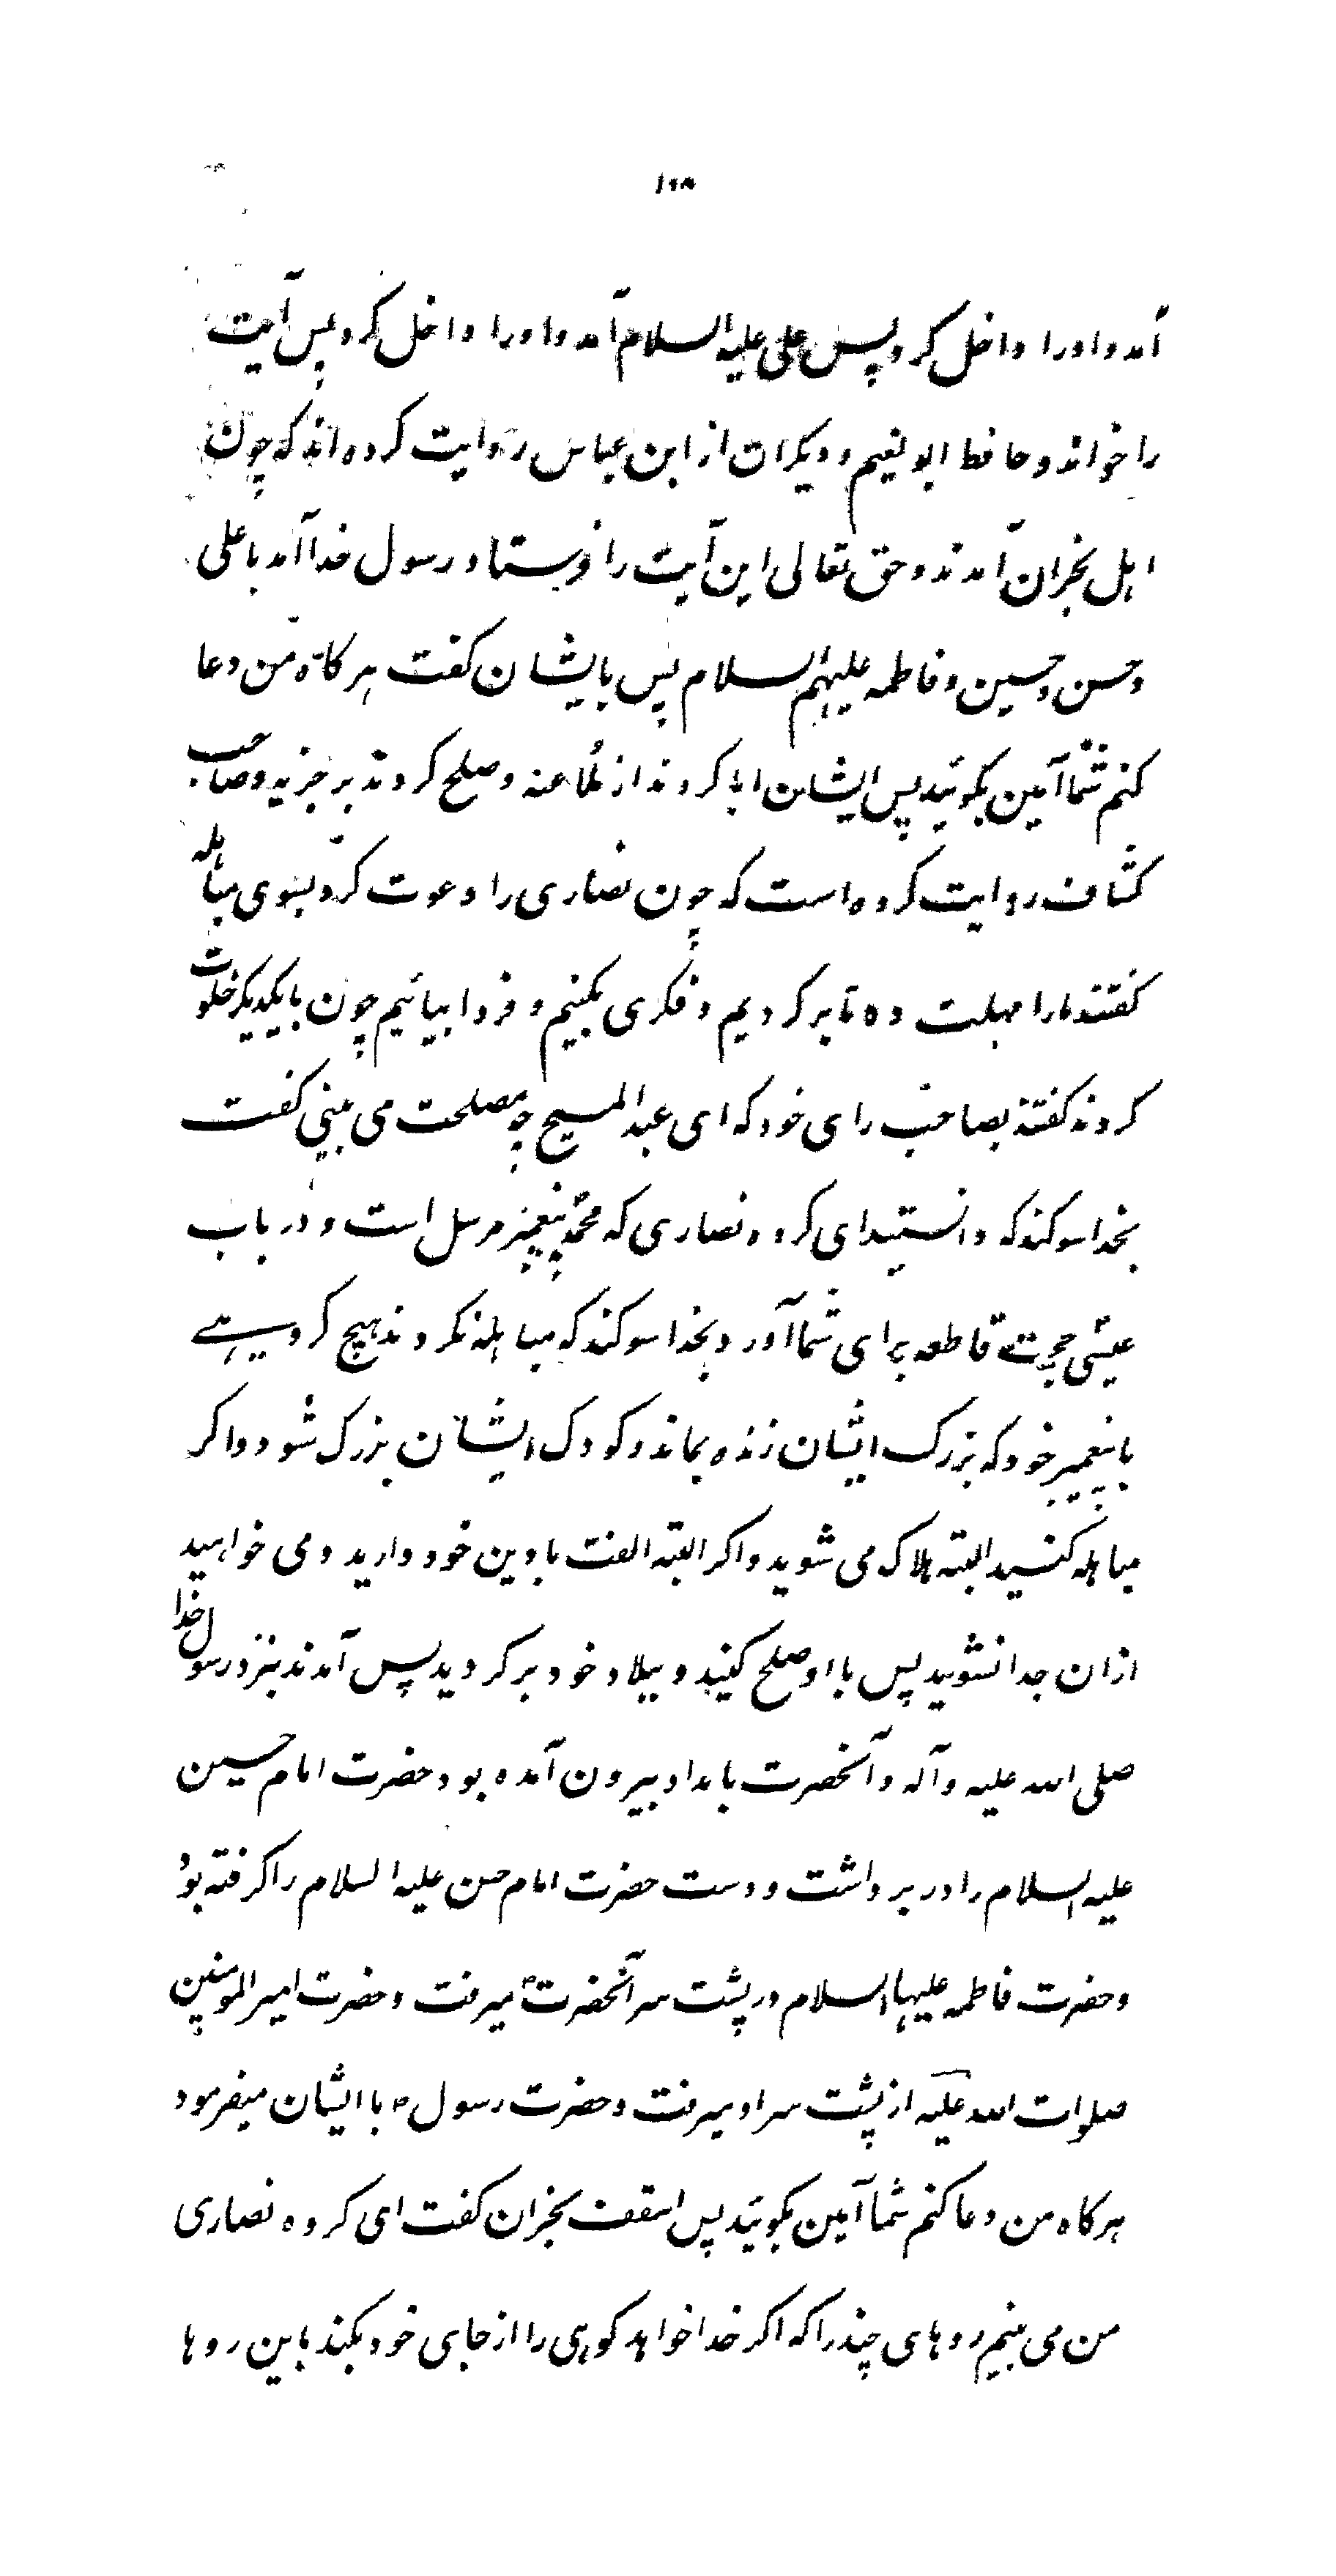 ۱۰۸
آمد و او را داخل کرد پس علی علیه السلام آمد و او را داخل کرد پس آیت
را خواند و حافظ ابو نعیم و دیکران از ابن عباس روایت کرده اند که چون
اهل نجران آمدند و حق تعالی این آیت را فرستاد رسول خدا آمد با علی
و حسن و حسین و فاطمه علیهم السلام پس بایشان کفت هرکاه من دعا
کنم شما آمین بکوئید پس ایشان ابا کردند از ملاعنه و صلح کردند بر جزیه و صاحب
کشاف روایت کرده است که چون نصاری را دعوت کرد بسوی مباهله
کفتند ما را مهلت ده تا برکردیم و فکری بکنیم و فردا بیائیم چون بایکدیکر خلوت
کردند کفتند بصاحب رای خود که ای عبد المسیح چه مصلحت می بینی کفت
بخدا سوکند که دانستید ای کروه نصاری که محمد پیغمبر مرسل است و در باب
عیسی حجت قاطعه برای شما آورد و بخدا سوکند که مباهله نکردند هیچ کروهی
با پیغمبر خود که بزرک ایشان زنده بماند و کودک ایشان بزرک شود و اکر
مباهله کنید البته هلاک می شوید و اکر البته الفت با دین خود دارید و می خواهید
ازان جدا نشوید پس با او صلح کنید و ببلاد خود برکردید پس آمدند بنزد رسول خدا
صلی الله علیه و آله و آنحضرت بامداد بیرون آمده بود حضرت امام حسین
علیه السلام را در بر داشت و دست حضرت امام حسن علیه السلام را کرفته بود
و حضرت فاطمه علیها السلام در پشت سر آنحضرت میرفت و حضرت امیر المومنین
صلوات الله علیه از پشت سر او میرفت و حضرت رسول ص با ایشان میفرمود
هرکاه من دعا کنم شما آمین بکوئید پس اسقف نجران کفت ای کروه نصاری
من می بینم روهای چند را که اکر خدا خواهد کوهی را از جای خود بکند باین روها